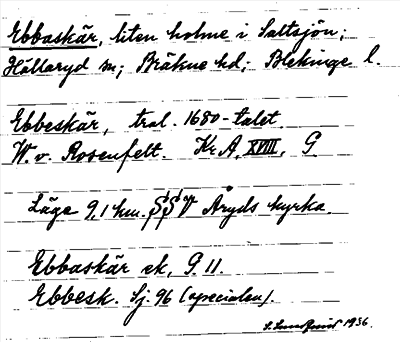 Ebbaskär, liten holme i Saltsjön;
Hällaryd sn; Bräkne hd; Blekinge l.
Ebbeskär, tral. 1680-talet
W. v. Rosenfelt. Kr. A. XVIII, G
Läge 9,1 km. SSV Åryds kyrka.
Ebbaskär ek, G. 11.
Ebbesk. Sj. 96 (specialen).
S. Lundquist 1936.